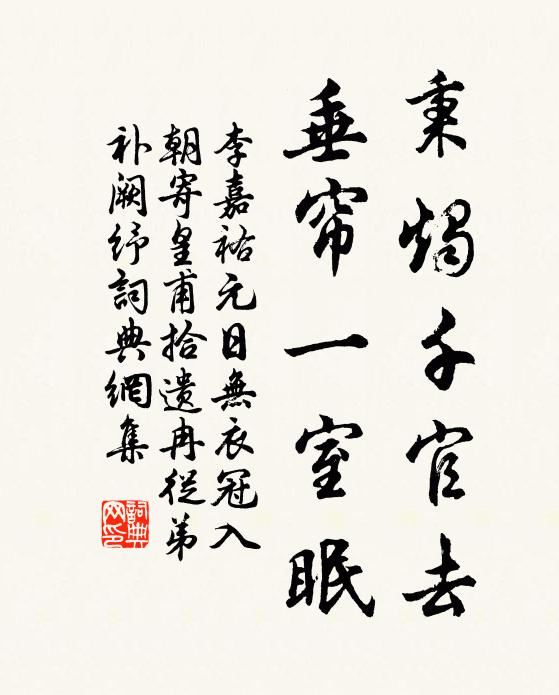 秉燭千官去
垂帘一室眠
李嘉祐元日無衣冠入
朝寄皇甫拾遗冉從弟
补阙纾詞典網集
詞典網印